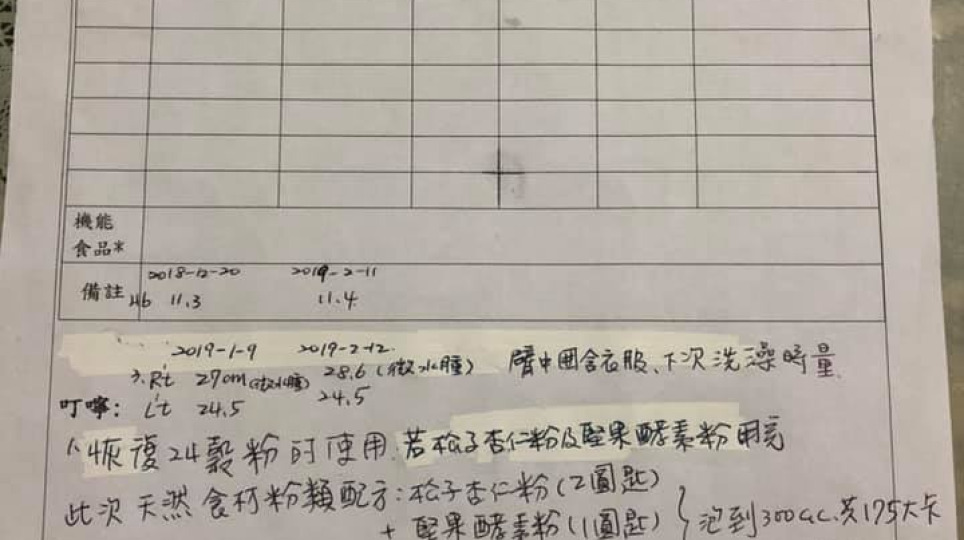 機能
食品*
2018-12-20 2019-2-11
備註 Hb 11.3 11.4
2019-1-9 2019-2-12
3. Rt 27cm(微水腫) 28.6(微水腫) 臂中圍含衣服、下次洗澡時量
叮嚀: Lt 24.5 24.5
1、恢復24穀粉的使用.若松子杏仁粉及堅果酵素粉用完
此次天然食材粉類配方:松子杏仁粉(2圓匙)
+ 堅果酵素粉(1圓匙) } 泡到300c.c.共175大卡